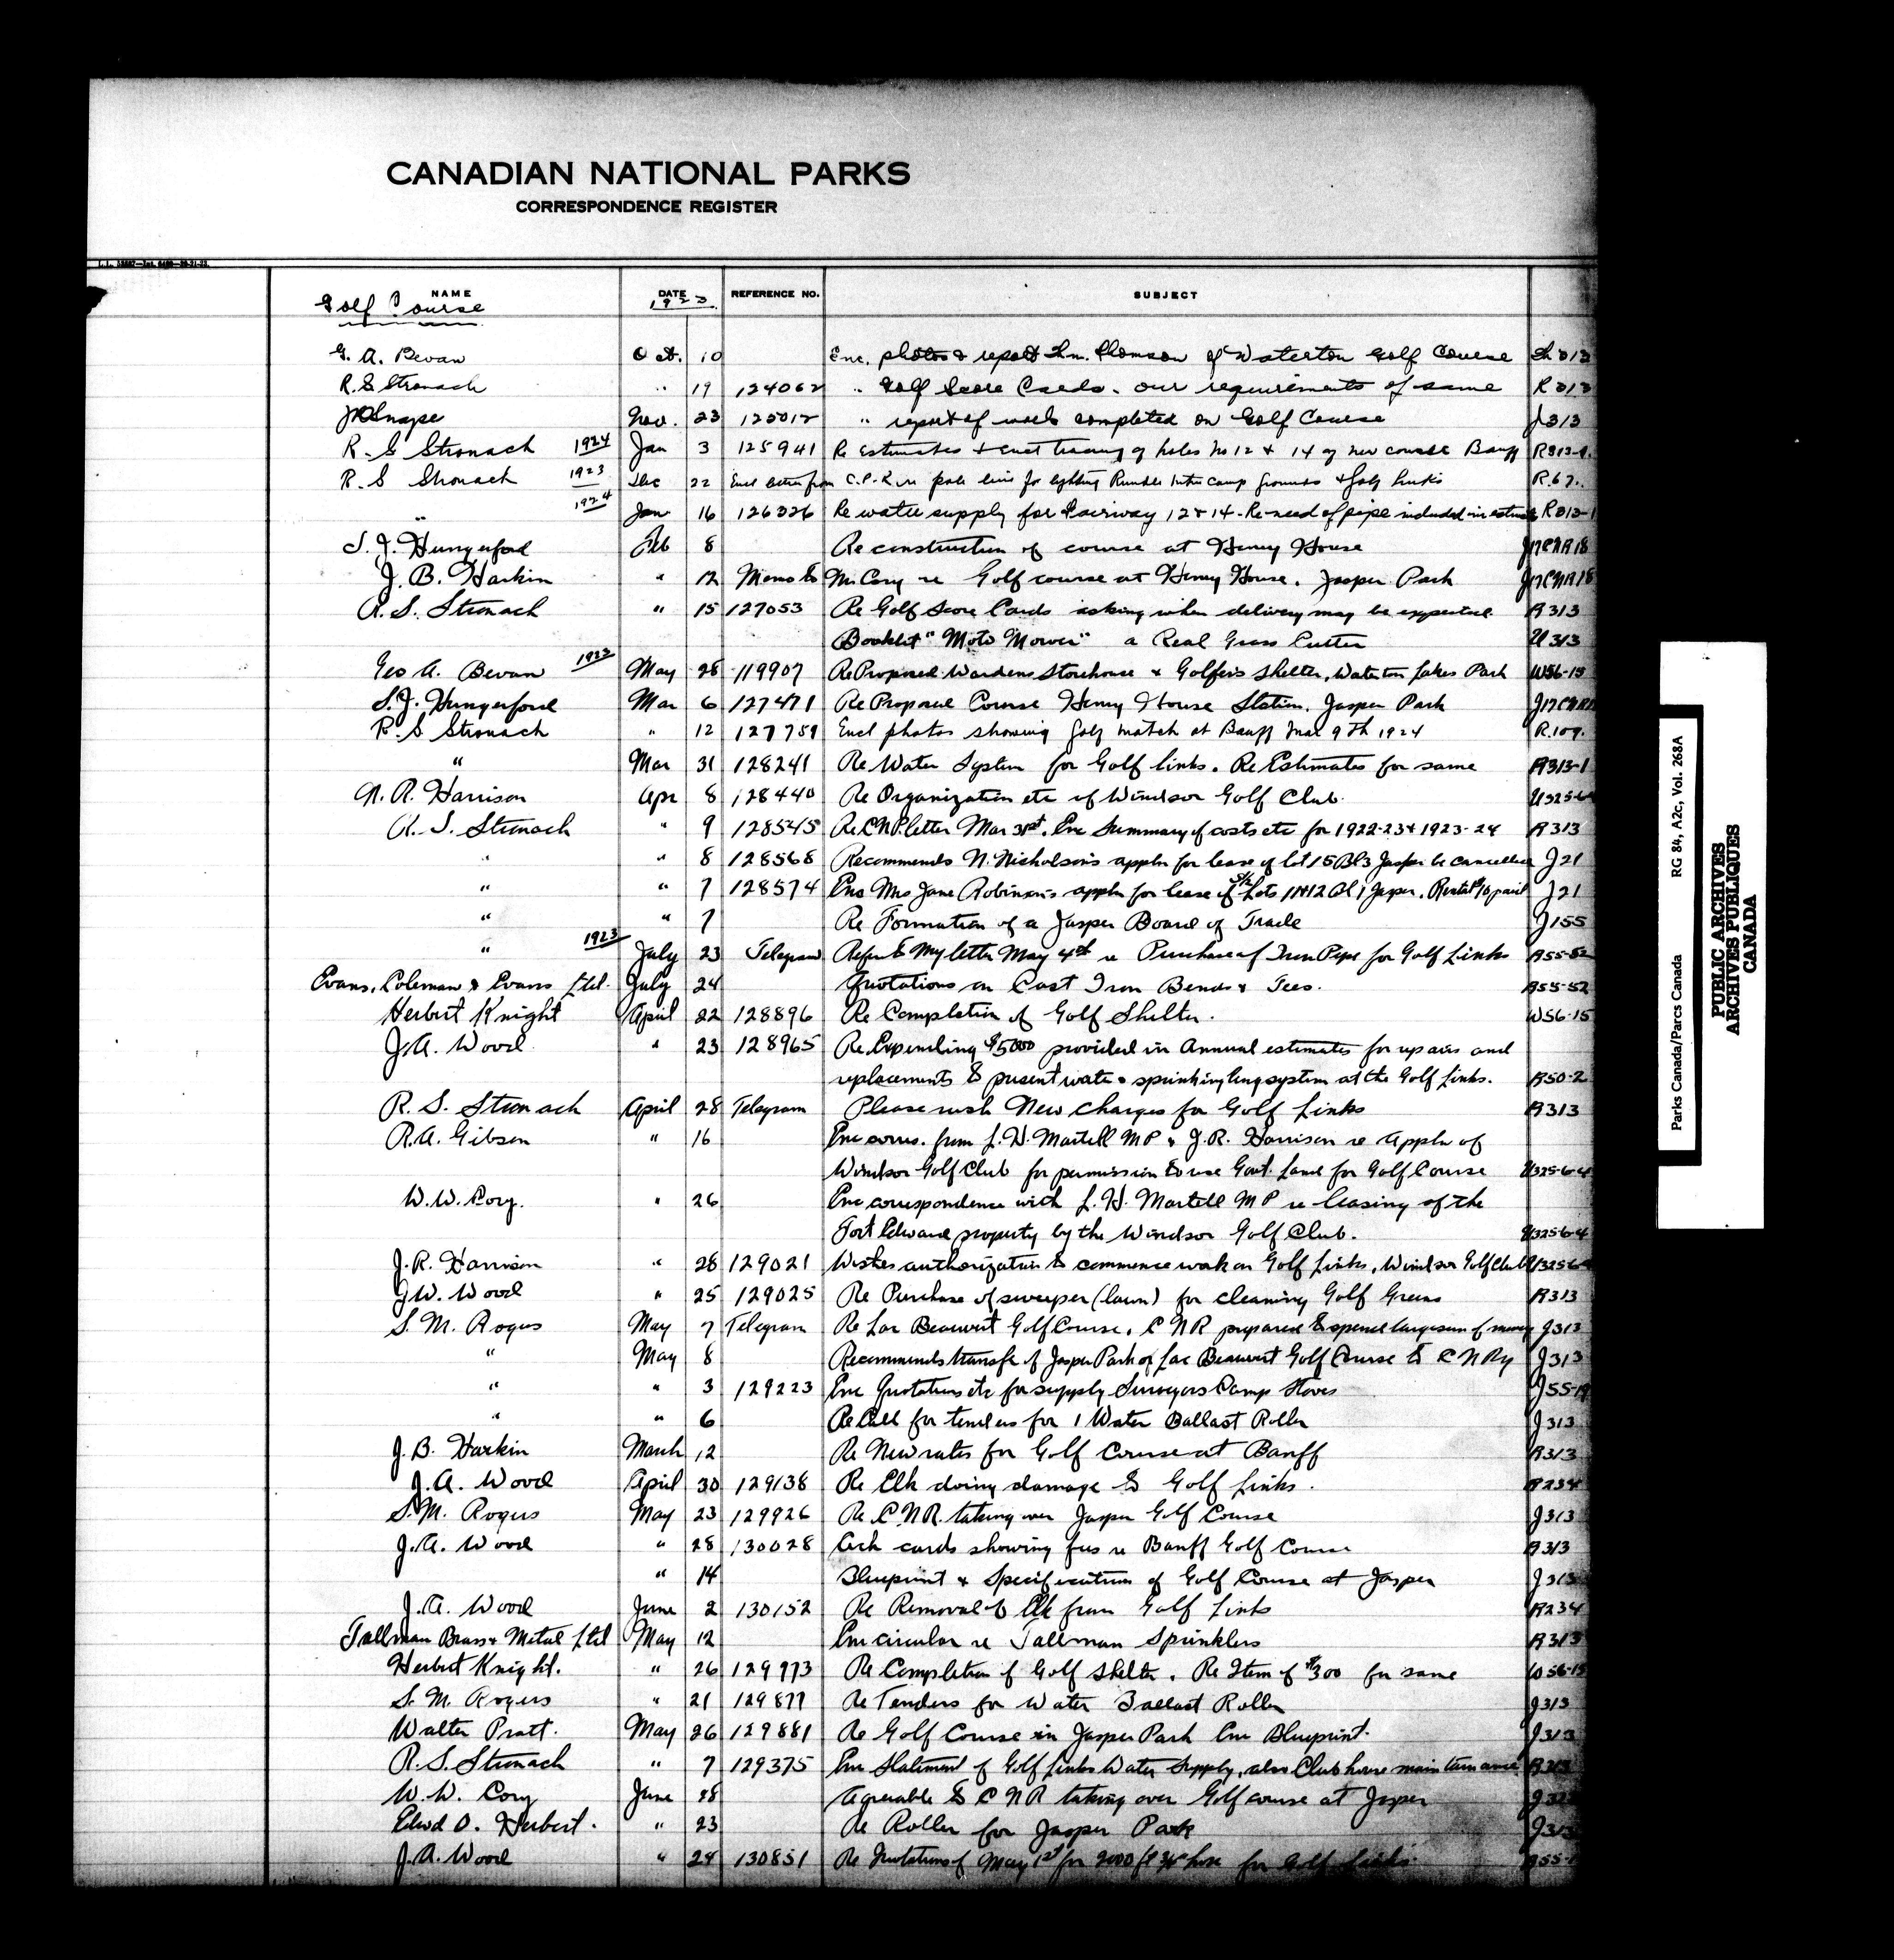 CANADIAN NATIONAL PARKS
CORRESPONDENCE REGISTER
NAME DATE REFERENCE NO. SUBJECT
Golf Course 1923
G. A. Bevan Oct. 10 Enc. photos & report Thomson of Waterton Golf Course
R. S Stronach " 19 124062 " Golf Score Cards. our requirements of same R313
Nov. 23 125012 " report of work completed on Golf Course J313
R. S Stronach 1924 Jan 3 125941 Re estimates & tracing of holes No 12 & 14 of new course Banff
R. S Stronach 1923 Dec 22 Encl letter from C.P.R. re pole line for lighting Camp Grounds & Golf Links R.62.
" 1924 Jan 16 126326 Re water supply for Fairway 12 & 14. Re need of pipe included in R313-1
S. J. Hungerford Feb 8 Re construction of course at Henry House J17CNR18
J. B. Harkin " 12 Memo to Mr Cory re Golf course at Henry House. Jasper Park J17CNR18
R. S. Stronach " 15 127053 Re Golf Score Cards asking when delivery may be expected R313
Booklet "Moto Mower" a Real Grass Cutter U313
Geo A. Bevan 1923 May 28 119907 Re Proposed Wardens Storehouse & Golfers Shelter, Waterton Lakes Park W56-15
S. J. Hungerford Mar 6 127471 Re Proposed Course Henry House Station. Jasper Park
R. S Stronach " 12 127759 Encl photos showing Golf match at Banff Mar 9th 1924 R.109.
" Mar 31 128241 Re Water System for Golf links. Re Estimates for same R313-1
Harrison Apr 8 128440 Re Organization etc of Windsor Golf Club.
R. S. Stronach " 9 128545 Re CNP letter Mar 31st. Enc Summary of costs etc for 1922-23 & 1923-24 R313
" " 8 128568 Recommends N. Nicholson's appln for lease of lot 15 Bl 3 Jasper be cancelled J21
" " 7 128574 Enc Mrs Jane Robinson's appln for lease of S½ Lots 11&12 Bl 1 Jasper. Rental $10 paid J21
" " 7 Re Formation of a Jasper Board of Trade J155
" 1923 July 23 Telegram Refer to My letter May 4th re Purchase of Iron Pipe for Golf Links R55-52
Evans, Coleman & Evans Ltd. July 24 Quotations on Cast Iron Bends & Tees. R55-52
Herbert Knight April 22 128896 Re Completion of Golf Shelter. W56-15
J. A. Wood " 23 128965 Re Expending $5000 provided in Annual estimates for repairs and
replacements to present water & sprinkling system at the Golf Links. R50-2
R. S. Stronach April 28 Telegram Please rush New Charges for Golf Links R313
R. A. Gibson " 16 Enc corres. from L. H. Martell MP & J. R. Harrison re Appln of
Windsor Golf Club for permission to use Govt. Land for Golf Course U325-6-4
W. W. Cory. " 26 Enc correspondence with L. H. Martell MP re leasing of the
Fort Edward property by the Windsor Golf Club. U325-6-4
J. R. Harrison " 28 129021 Wishes authorization to commence work on Golf Links, Windsor Golf Club
Wood " 25 129025 Re Purchase of sweeper (lawn) for cleaning Golf Greens R313
S. M. Rogers May 7 Telegram Re Lac Beauvert Golf Course. C N R prepared to spend large sum of money J313
" May 8 Recommends transfer of Jasper Park or Lac Beauvert Golf Course to C N Ry J313
" " 3 129223 Enc Quotations etc for supply Surveyors Camp Stoves
" " 6 Re Call for tenders for 1 Water Ballast Roller J313
J. B. Harkin March 12 Re New rates for Golf Course at Banff R313
J. A. Wood April 30 129138 Re Elk doing damage to Golf Links. R234
S. M. Rogers May 23 129926 Re C.N.R. taking over Jasper Golf Course J313
J. A. Wood " 28 130028 Ack cards showing fees re Banff Golf Course R313
" 14 Blueprint & Specifications of Golf Course at Jasper J313
J. A. Wood June 2 130152 Re Removal of Elk from Golf Links R234
Tallman Brass & Metal Ltd May 12 Enc circular re Tallman Sprinklers R313
Herbert Knight. " 26 129973 Re Completion of Golf Shelter. Re Item of $300 for same W56-15
S. M. Rogers " 21 129877 Re Tenders for Water Ballast Roller J313
Walter Pratt. May 26 129881 Re Golf Course in Jasper Park Enc Blueprint. J313
R. S. Stronach " 7 129375 Enc Statement of Golf Links Water Supply, also Club house maintenance R313
W. W. Cory June 28 Agreeable to C N R taking over Golf course at Jasper
Edwd O. Herbert. " 23 Re Roller for Jasper Park J313
J. A. Wood " 24 130851 Re Quotations of May 1st for 2000 ft ¾" hose for Golf Links.
Parks Canada/Parcs Canada RG 84, A2c, Vol. 268A
PUBLIC ARCHIVES
ARCHIVES PUBLIQUES
CANADA